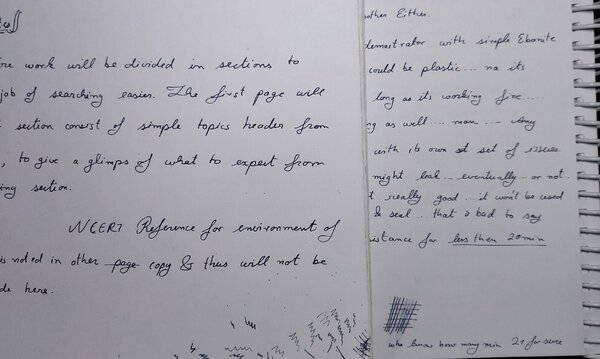 work will be divided in sections to
job of searching easier. The first page will
section consist of simple topics header from
, to give a glimps of what to expect from
ing section.
NCERT Reference for environment of
is noted in other page copy & thus will not be
de here.
other Either.
demostrator with simple Ebonite
could be plastic... na its
long as its working fine.....
as well... man...
with its own set set of issues.
might leak... eventually or not
really good... it won't be used
& seal... that a bad to say
istance for less then 20min
who knows how many min 2+ for sure